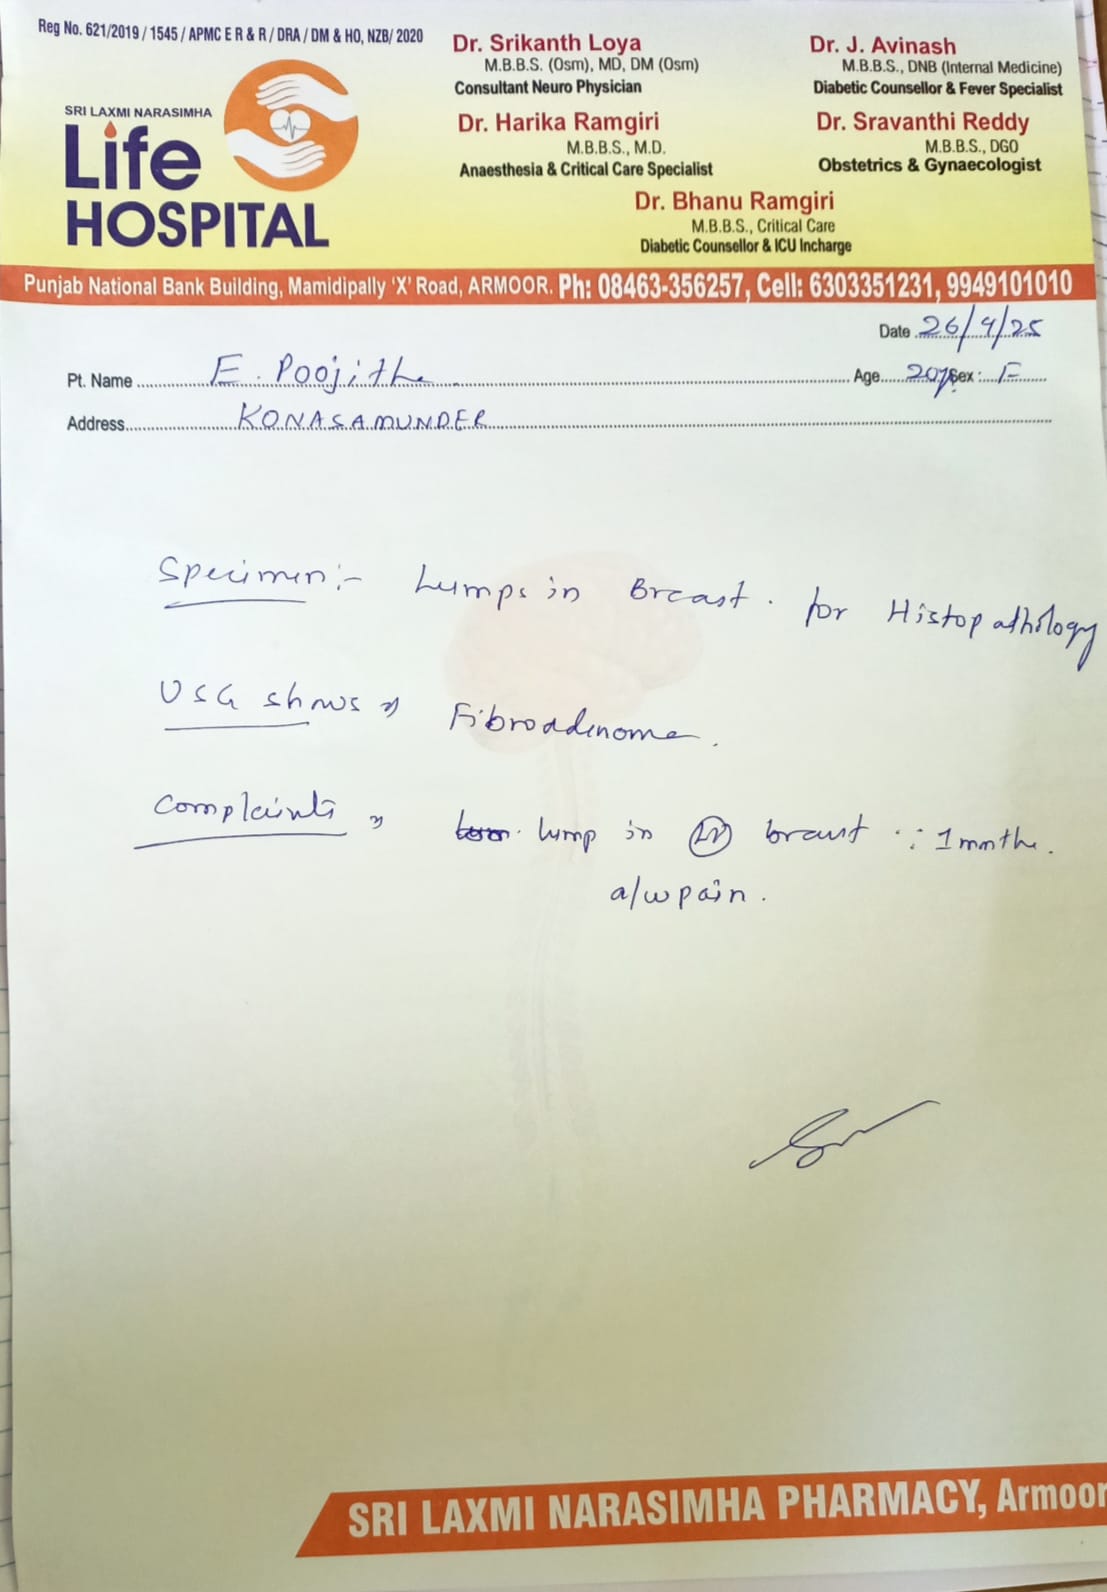 Reg No. 621/2019 / 1545 / APMC E R & R / DRA / DM & HO, NZB/ 2020
SRI LAXMI NARASIMHA
Life
HOSPITAL
Dr. Srikanth Loya
M.B.B.S. (Osm), MD, DM (Osm)
Consultant Neuro Physician
Dr. J. Avinash
M.B.B.S., DNB (Internal Medicine)
Diabetic Counsellor & Fever Specialist
Dr. Harika Ramgiri
M.B.B.S., M.D.
Anaesthesia & Critical Care Specialist
Dr. Sravanthi Reddy
M.B.B.S., DGO
Obstetrics & Gynaecologist
Dr. Bhanu Ramgiri
M.B.B.S., Critical Care
Diabetic Counsellor & ICU Incharge
Punjab National Bank Building, Mamidipally 'X' Road, ARMOOR. Ph: 08463-356257, Cell: 6303351231, 9949101010
Date 26/9/25
Pt. Name E. Poojitha Age 20 Sex: F
Address KONASAMUNDER
Specimen:- Lumps in Breast. for Histopathology
USG shows Fibroadenoma.
Complaints lump in breast 1 month.
a/w pain.
SRI LAXMI NARASIMHA PHARMACY, Armoor